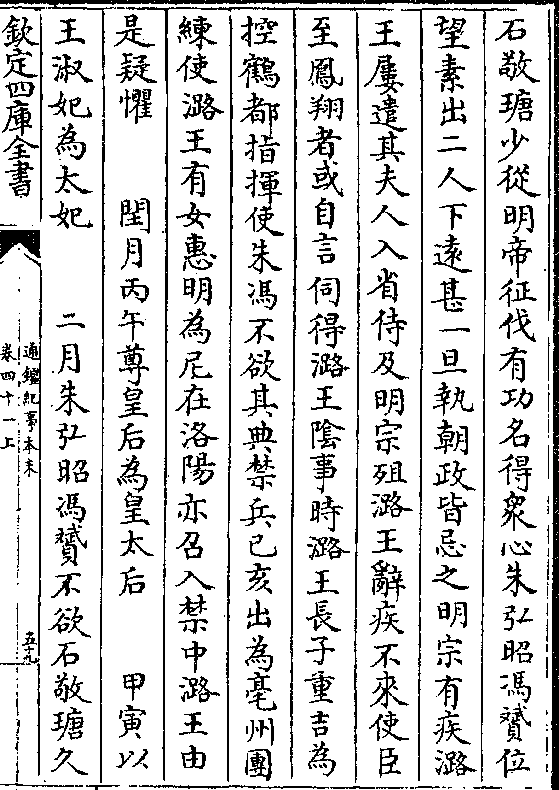 石敬瑭少從明帝征伐有功名得衆心朱弘昭馮贇位
望素出二人下遠甚一旦執朝政皆忌之明宗有疾潞
王屢遣其夫人入省侍及明宗殂潞王辭疾不來使臣
至鳳翔者或自言伺得潞王陰事時潞王長子重吉為
控鶴都指揮使朱馮不欲其典禁兵己亥出為亳州團
練使潞王有女惠明為尼在洛陽亦召入禁中潞王由
是疑懼　閏月丙午尊皇后為皇太后　甲寅以
王淑妃為太妃　二月朱弘昭馮贇不欲石敬瑭久
欽定四庫全書
通鑑紀事本末
卷四十一上
五十九